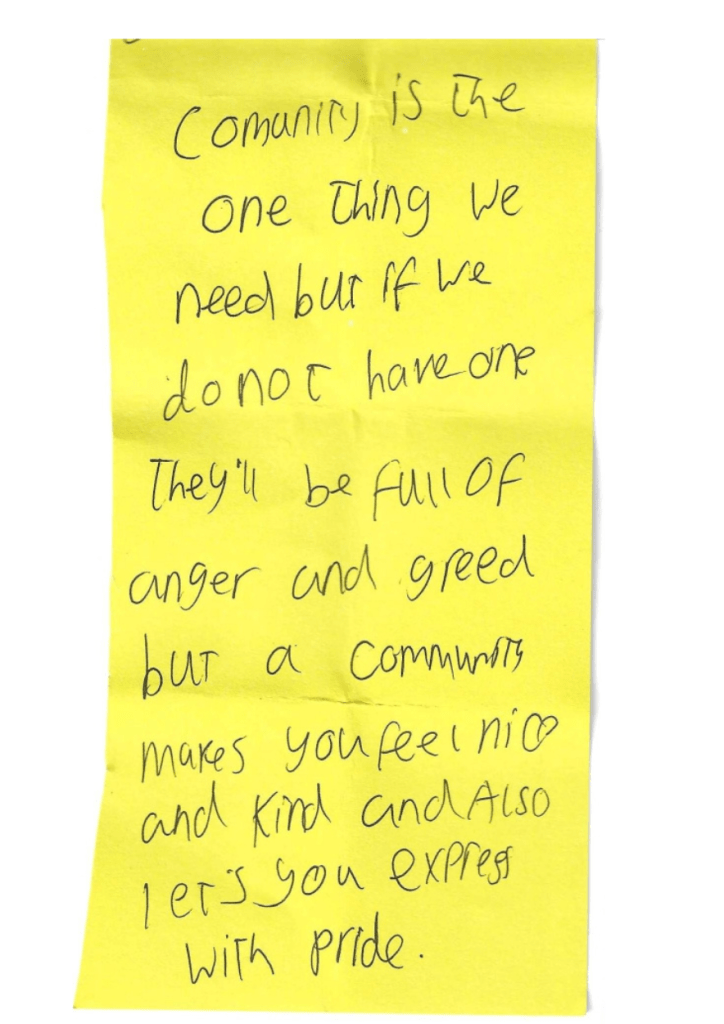 Comunity is the
one thing we
need but if we
do not have one
They'll be full of
anger and greed
but a community
makes you feel nice
and kind and Also
let's you express
with pride.